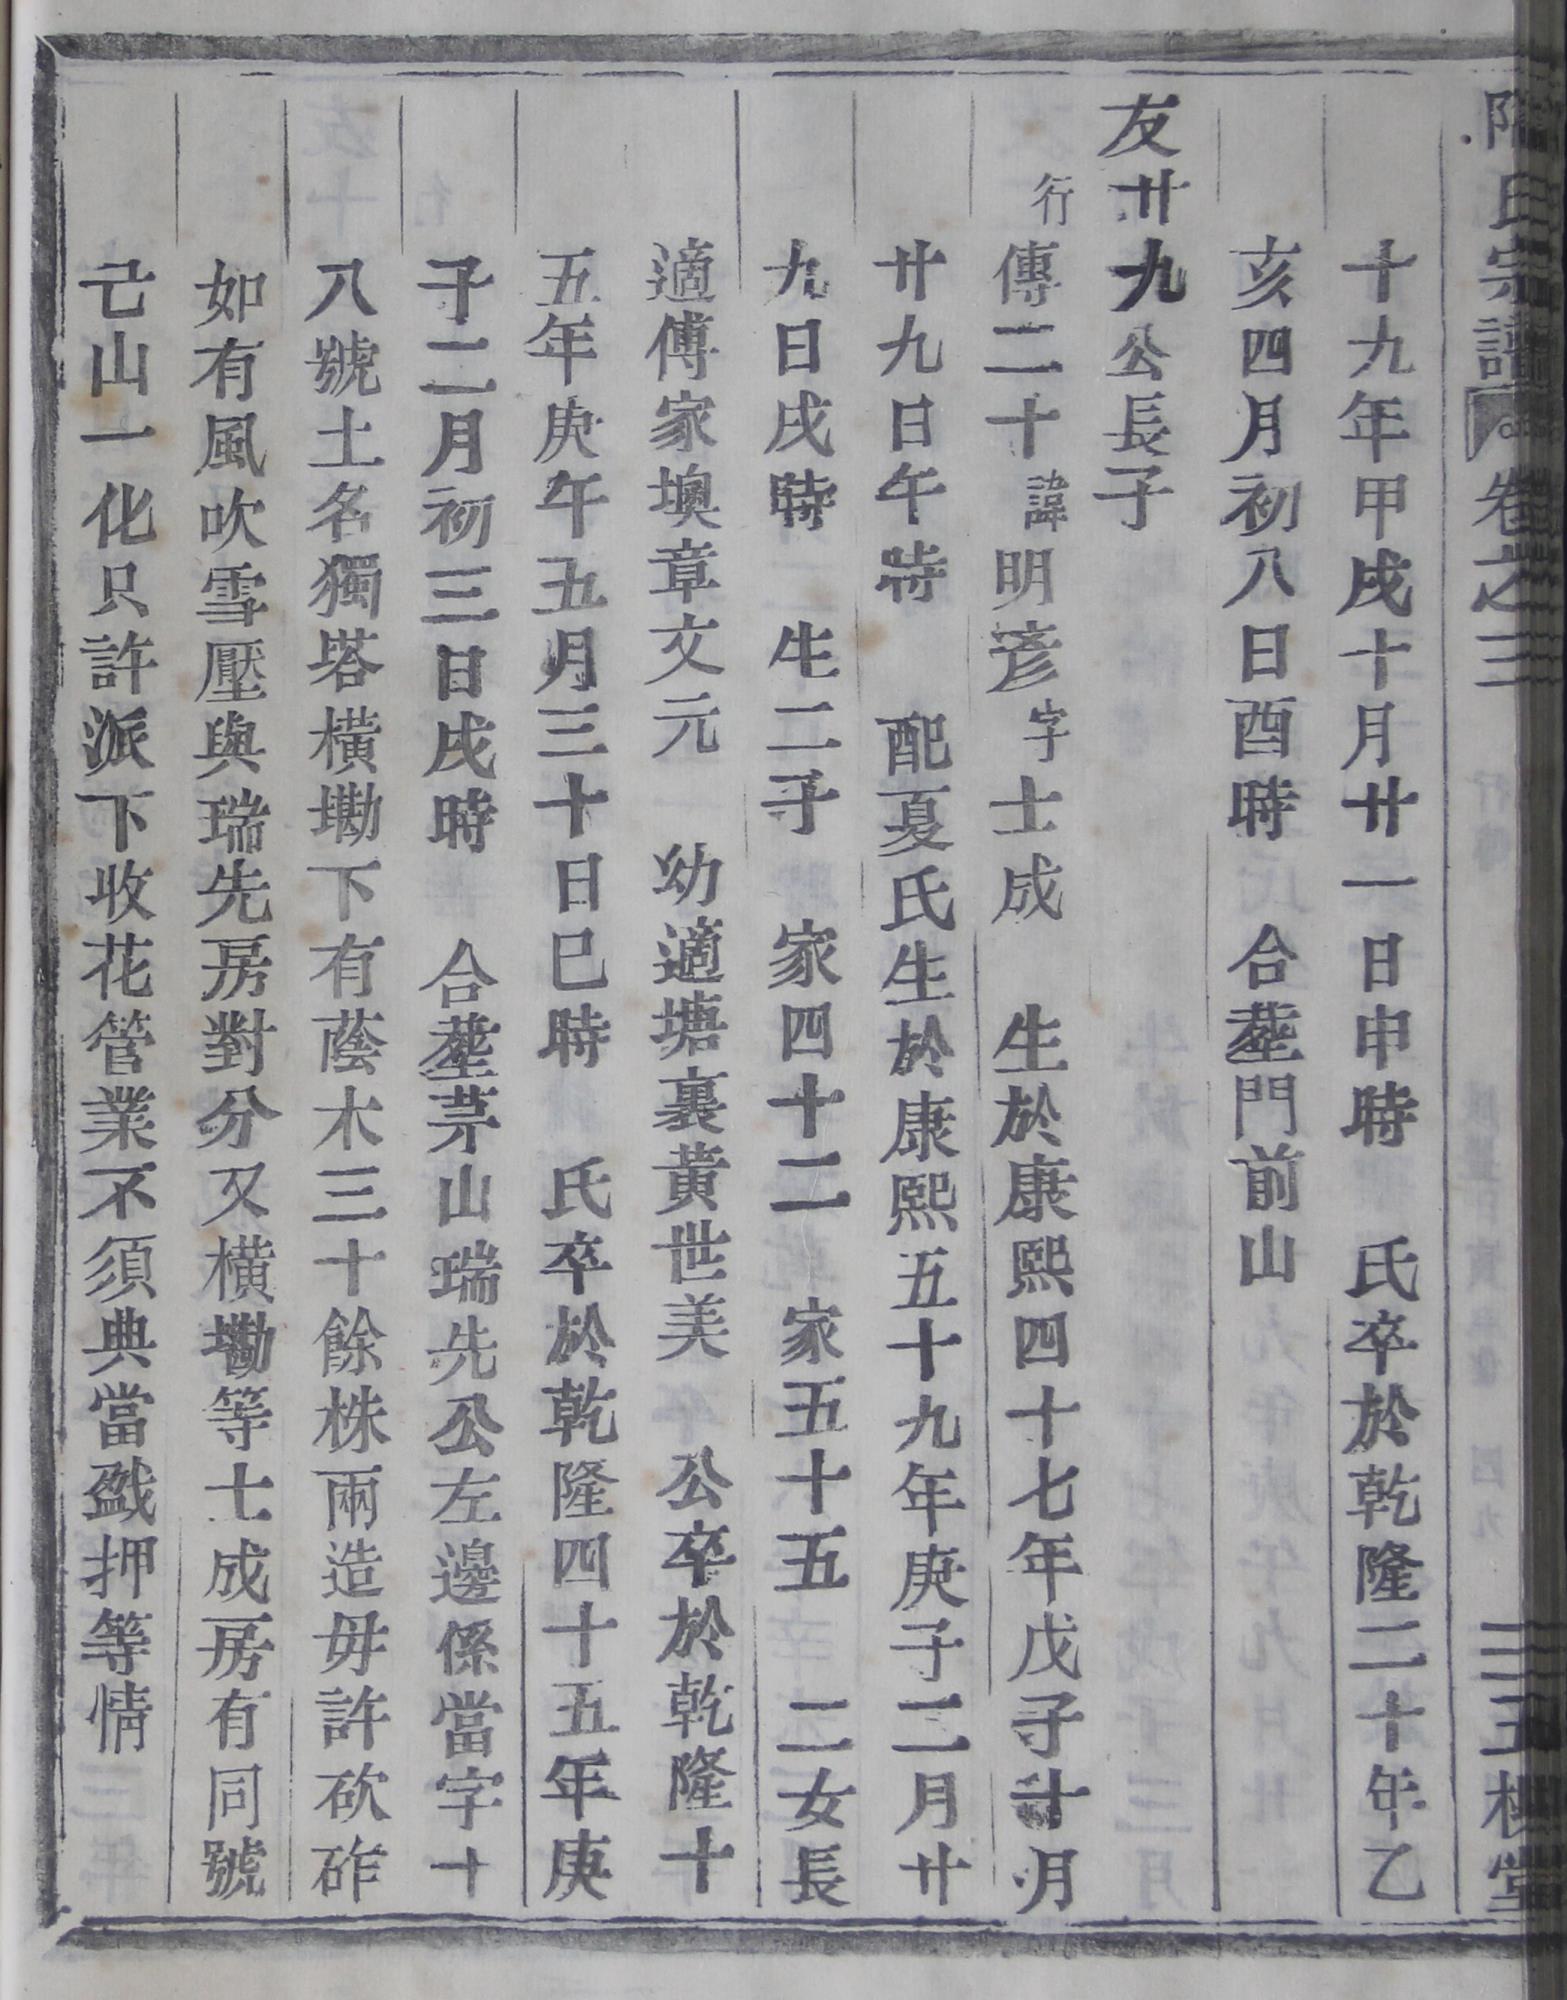 氏宗譜 卷之三 三五槐堂
十九年甲戌十月廿一日申時 氏卒於乾隆二十年乙
亥四月初八日酉時 合塟門前山
友廿九公長子
行傳二十諱明彥字士成 生於康熙四十七年戊子十月
廿九日午時 配夏氏生於康熙五十九年庚子二月廿
九日戌時 生二子 家四十二 家五十五 二女長
適傅家墺章文元 幼適塘裏黃世美 公卒於乾隆十
五年庚午五月三十日巳時 氏卒於乾隆四十五年庚
子二月初三日戌時 合塟茅山瑞先公左邊係當字十
八號土名獨塔橫墈下有蔭木三十餘株兩造毋許砍砟
如有風吹雪壓與瑞先房對分又橫墈等士成房有同號
己山一化只許派下收花管業不須典當戤押等情